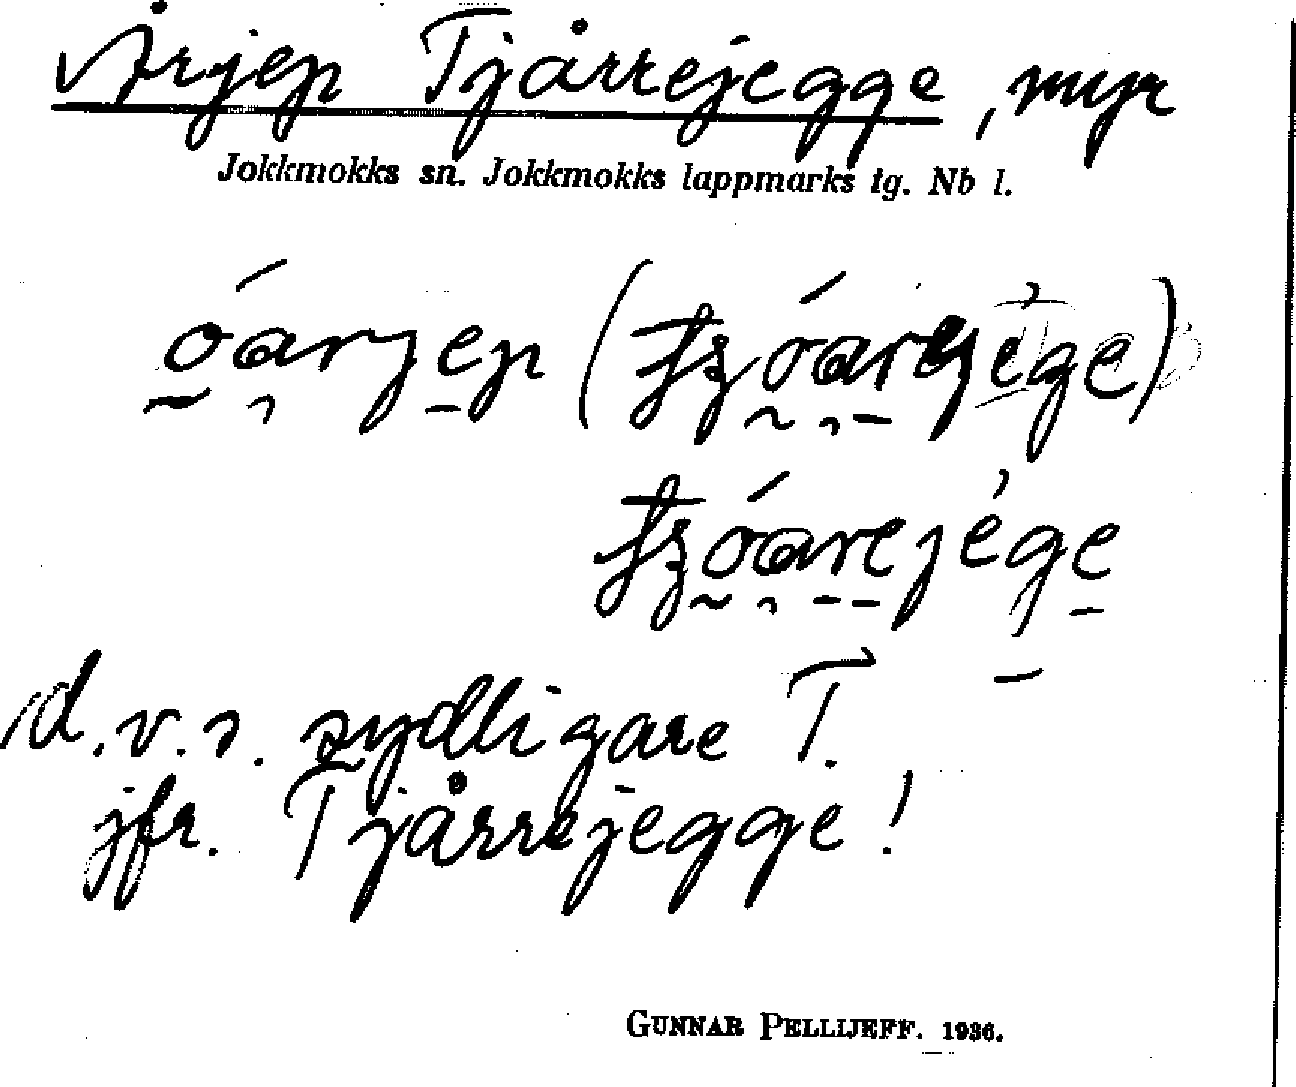 Årjep Tjårrejegge, myr
Jokkmokks sn. Jokkmokks lappmarks tg. Nb l.
óarjep (
d.v.s. sydligare T.
jfr. Tjårrejegge!
GUNNAR PELLIJEFF. 1936.